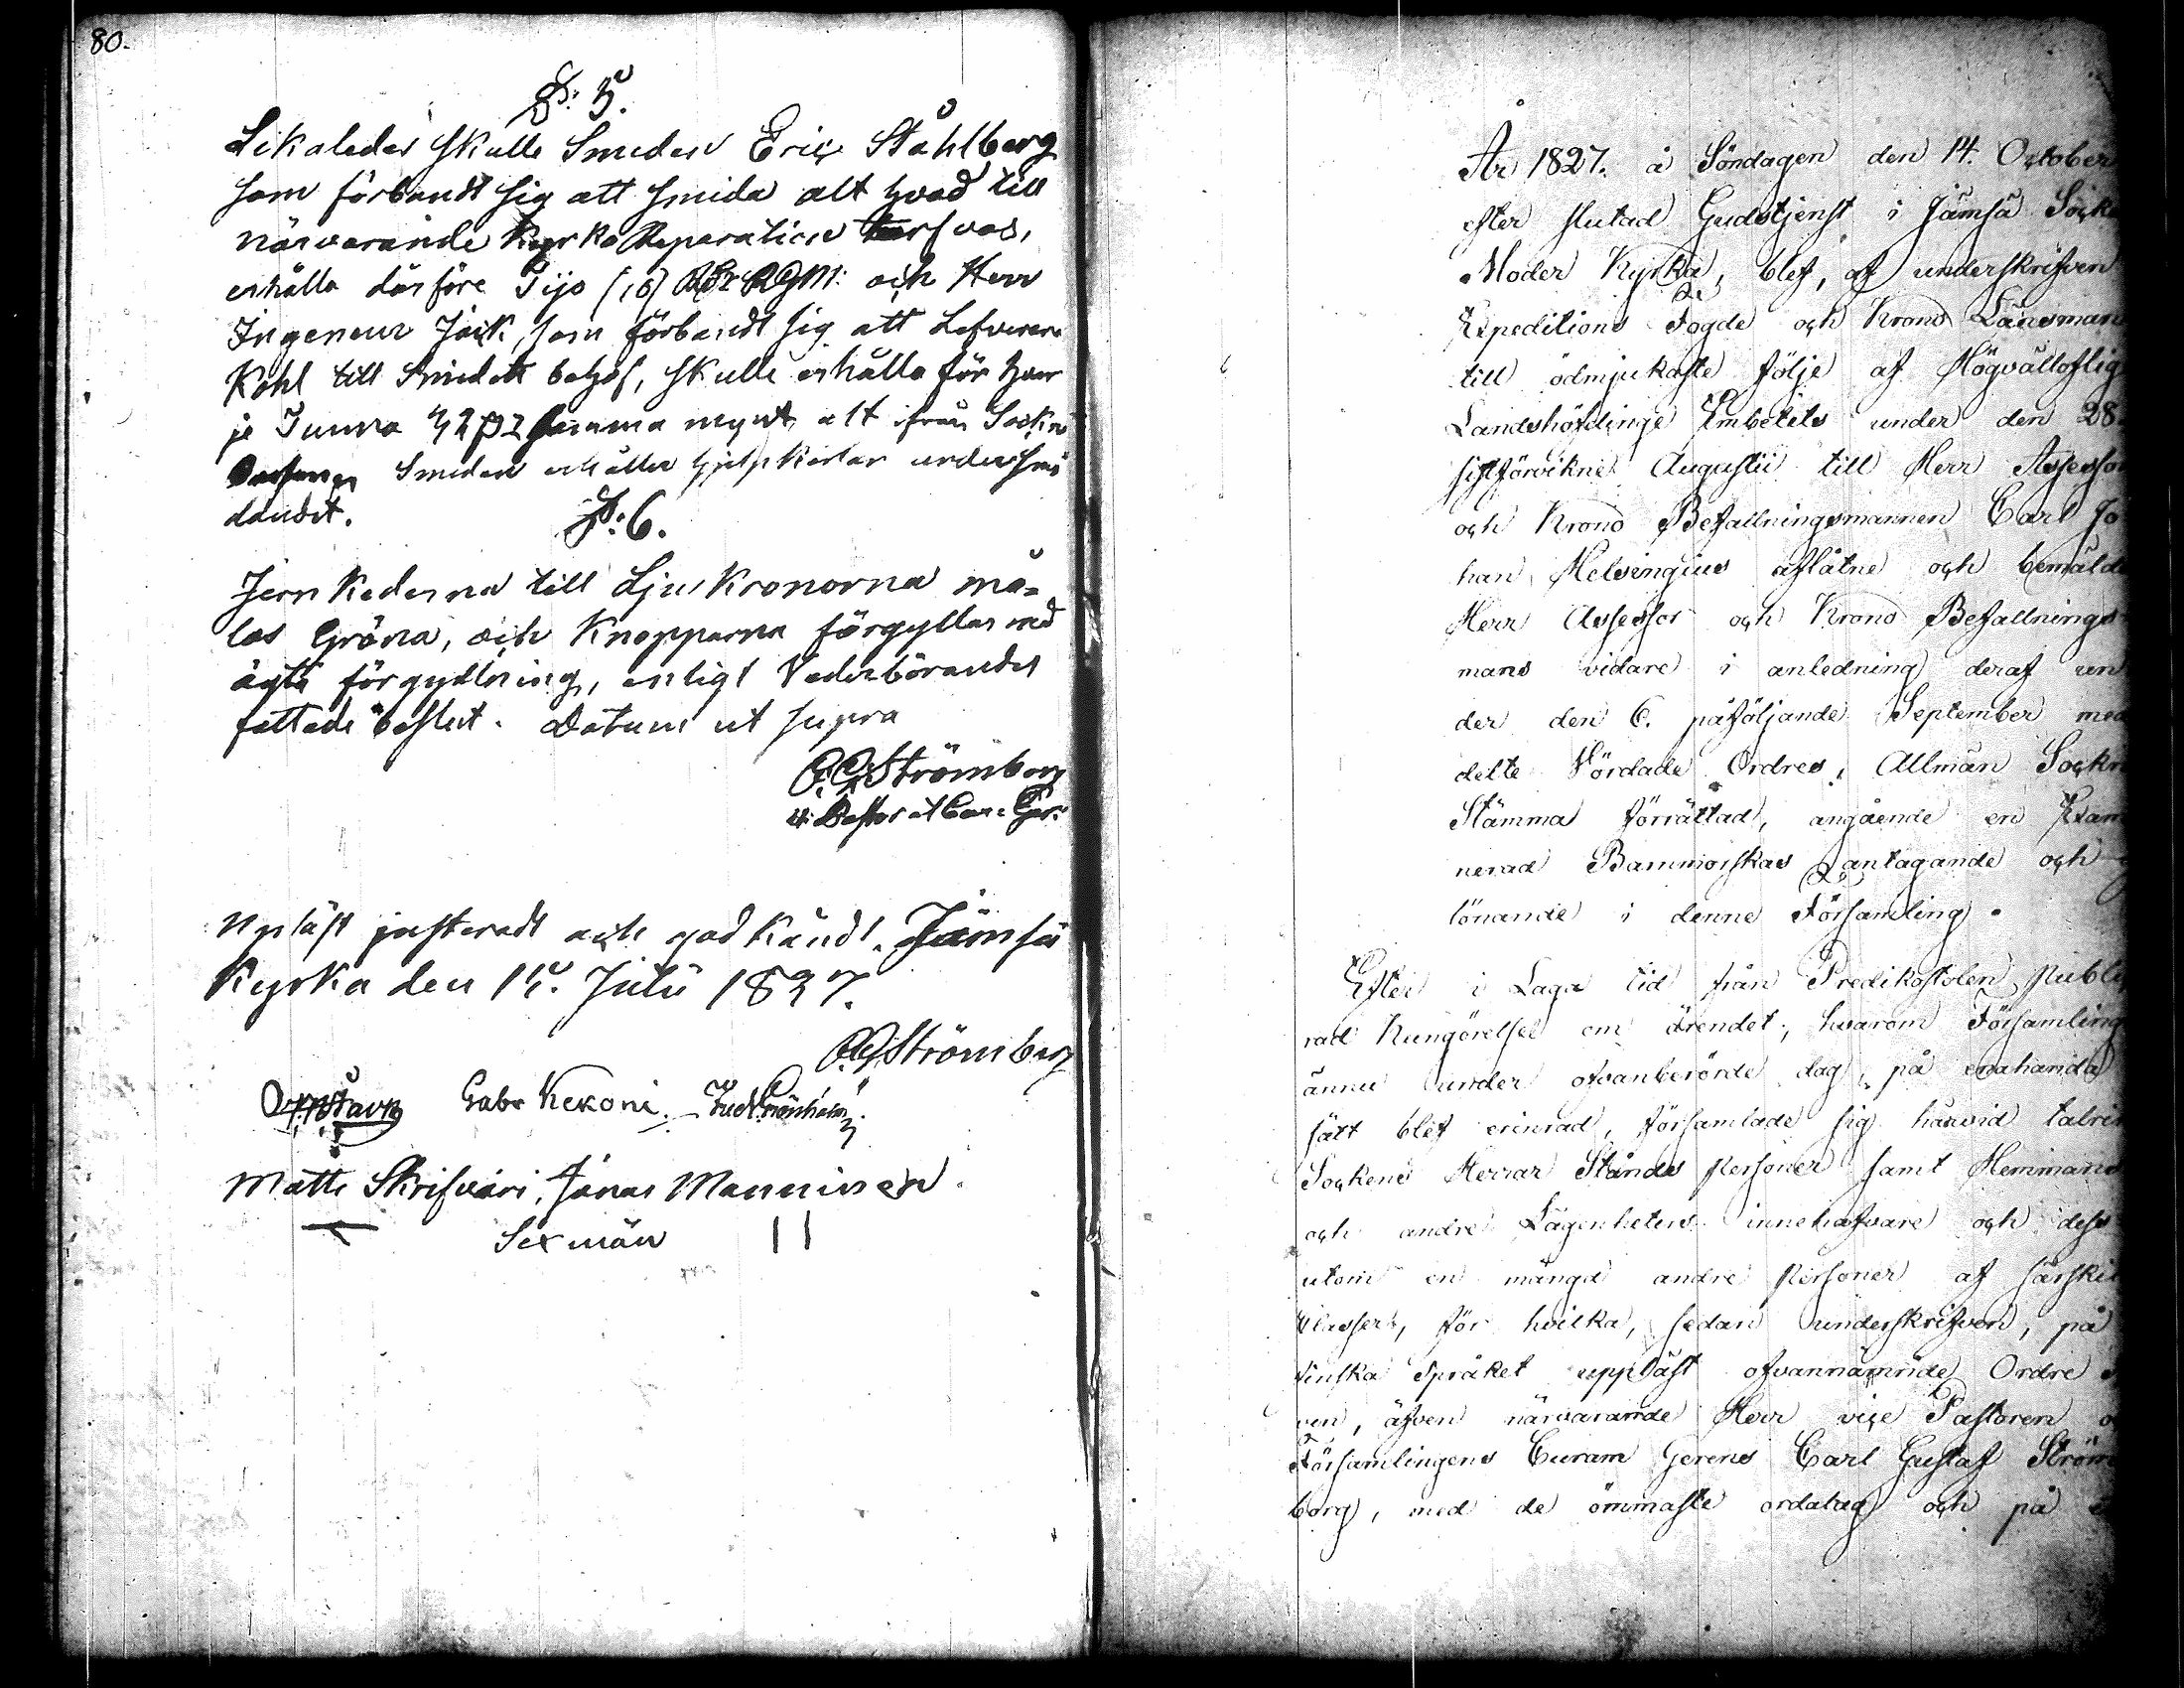 80.
§: 5.
Likaledes skulle Smeden Eric Ståhlberg
som förbandt sig att smida alt hvad till
närvarande Kyrko Reparation tarfvas,
erhålla därföre Tijo (10) RS: och Herr
Ingeneur Jack, som förbandt sig att Lefverera
Kohl till Smidets behof, skulle erhålla för hvar
je Tunna 42 samma mynt, alt ifrån Sockn
Smeden erhåller hjelpkarlar under smi
dandet.
§: 6.
Jern Kederna till Ljus Kronorna må-
las Gröna, och Knopparna förgyllas med
ägta förgyllning, enligt Vederbörandes
fattade beslut. Datum ut supra
C.G. Strömborg
v: Pastor et Cur: Ger:
Upläst justeradt och godkändt. Jämsä
Kyrka den 15. Julii 1827.
C.G. Strömborg
Gabr Kekoni.
Matts Skrifvars, Jonas Manninen
Sexmän
År 1827. å Söndagen den 14. October
efter slutad Gudstjenst i Jämsä Sock
Moder Kyrka, blef, af underskrifven
Expeditions Fogde och Krono Länsman
till ödmjukaste följe af Högvälloflig
Landshöfdinge Embetets under den 28.
sistförvikne Augustii till Herr Assessor
och Krono Befallningsmannen Carl Jo
han Helsingius aflåtne och bemälde
Herr Assessor och Krono Befallnings
mans vidare i anledning deraf un
der den 6. påföljande September med
delte Vördade Ordres, Allmän Sockne
Stämma förrättad, angående en Exami
nerad Barnmorskas antagande och
lönande i denne Församling.
Efter i Laga tid från Predikostolen publi
rad Kungörelse om ärendet, hvarom Församling
ännu under ofvanberörde dag, på enahanda
sätt blef erinrad, församlade sig härvid talri
Sockens Herrar Stånds personer samt Hemmans
och andre Lägenheters innehafvare och dess
utom en mängd andre personer af särskil
Classer, för hvilka, sedan underskrifven, på
Finska språket uppläst ofvannämnde Ordre
ven, äfven närvarande Herr vice Pastoren o
Församlingens Curam Gerens Carl Gustaf Ström
borg, med de ömmaste ordalag och på